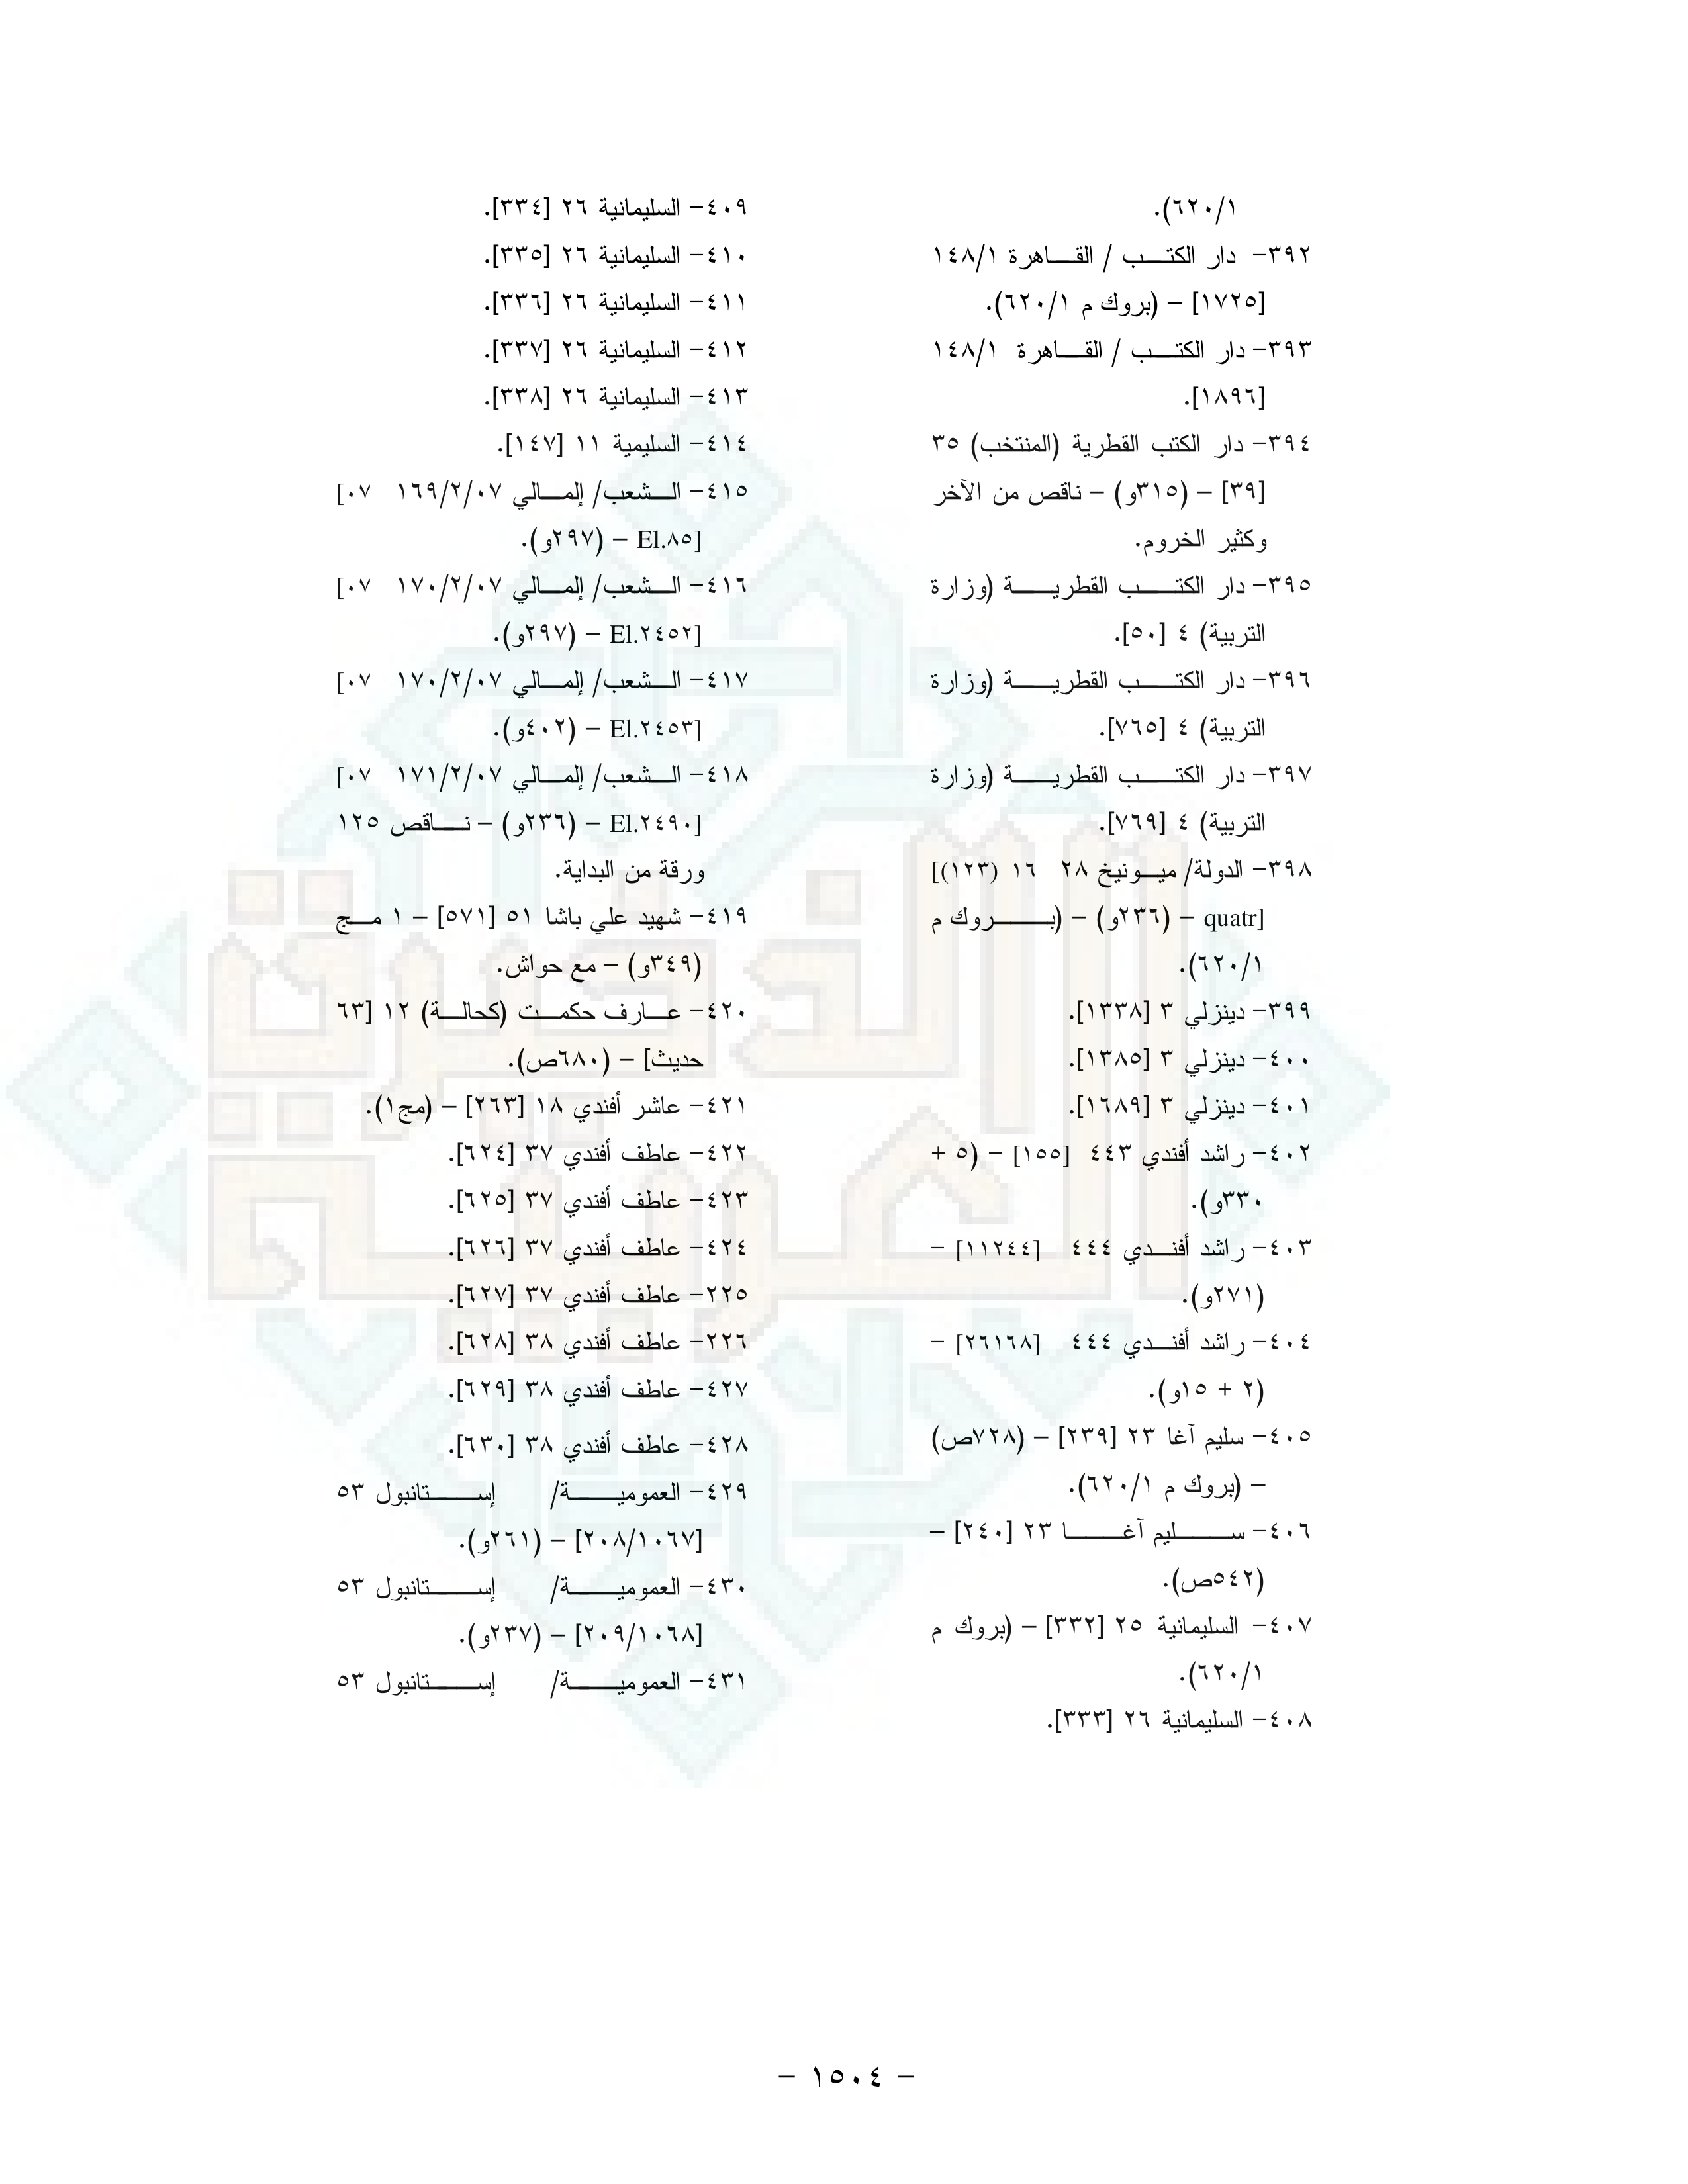 ١/٦٢٠).
٣٩٢- دار الكتب / القاهرة ١٤٨/١
[١٧٢٥] – (بروك م ٦٢٠/١).
٣٩٣- دار الكتب / القاهرة ١٤٨/١
[١٨٩٦].
٣٩٤- دار الكتب القطرية (المنتخب) ٣٥
[٣٩] – (٣١٥و) – ناقص من الآخر
وكثير الخروم.
٣٩٥- دار الكتب القطرية (وزارة
التربية) ٤ [٥٠].
٣٩٦- دار الكتب القطرية (وزارة
التربية) ٤ [٧٦٥].
٣٩٧- دار الكتب القطرية (وزارة
التربية) ٤ [٧٦٩].
٣٩٨- الدولة/ ميونيخ ٢٨ ١٦ (١٢٣)]
[quatr – (٢٣٦و) – (بروك م
٦٢٠/١).
٣٩٩- دينزلي ٣ [١٣٣٨].
٤٠٠- دينزلي ٣ [١٣٨٥].
٤٠١- دينزلي ٣ [١٦٨٩].
٤٠٢- راشد أفندي ٤٤٣ [١٥٥] – (٥ +
٣٣٠و).
٤٠٣- راشد أفندي ٤٤٤ [١١٢٤٤] –
(٢٧١و).
٤٠٤- راشد أفندي ٤٤٤ [٢٦١٦٨] –
(٢ + ١٥و).
٤٠٥- سليم آغا ٢٣ [٢٣٩] – (٧٢٨ص)
– (بروك م ٦٢٠/١).
٤٠٦- سليم آغا ٢٣ [٢٤٠] –
(٥٤٢ص).
٤٠٧- السليمانية ٢٥ [٣٣٢] – (بروك م
٦٢٠/١).
٤٠٨- السليمانية ٢٦ [٣٣٣].
٤٠٩- السليمانية ٢٦ [٣٣٤].
٤١٠- السليمانية ٢٦ [٣٣٥].
٤١١- السليمانية ٢٦ [٣٣٦].
٤١٢- السليمانية ٢٦ [٣٣٧].
٤١٣- السليمانية ٢٦ [٣٣٨].
٤١٤- السليمية ١١ [١٤٧].
٤١٥- الشعب/ إلمالي ١٦٩/٢/٠٧ ٠٧]
[El.٨٥ – (٢٩٧و).
٤١٦- الشعب/ إلمالي ١٧٠/٢/٠٧ ٠٧]
[El.٢٤٥٢ – (٢٩٧و).
٤١٧- الشعب/ إلمالي ١٧٠/٢/٠٧ ٠٧]
[El.٢٤٥٣ – (٤٠٢و).
٤١٨- الشعب/ إلمالي ١٧١/٢/٠٧ ٠٧]
[El.٢٤٩٠ – (٢٣٦و) – ناقص ١٢٥
ورقة من البداية.
٤١٩- شهيد علي باشا ٥١ [٥٧١] – ١ مج
(٣٤٩و) – مع حواش.
٤٢٠- عارف حكمت (كحالة) ١٢ [٦٣
حديث] – (٦٨٠ص).
٤٢١- عاشر أفندي ١٨ [٢٦٣] – (مج١).
٤٢٢- عاطف أفندي ٣٧ [٦٢٤].
٤٢٣- عاطف أفندي ٣٧ [٦٢٥].
٤٢٤- عاطف أفندي ٣٧ [٦٢٦].
٢٢٥- عاطف أفندي ٣٧ [٦٢٧].
٢٢٦- عاطف أفندي ٣٨ [٦٢٨].
٤٢٧- عاطف أفندي ٣٨ [٦٢٩].
٤٢٨- عاطف أفندي ٣٨ [٦٣٠].
٤٢٩- العمومية/ إستانبول ٥٣
[٢٠٨/١٠٦٧] – (٢٦١و).
٤٣٠- العمومية/ إستانبول ٥٣
[٢٠٩/١٠٦٨] – (٢٣٧و).
٤٣١- العمومية/ إستانبول ٥٣
– ١٥٠٤ –
الذخيرة
العربية